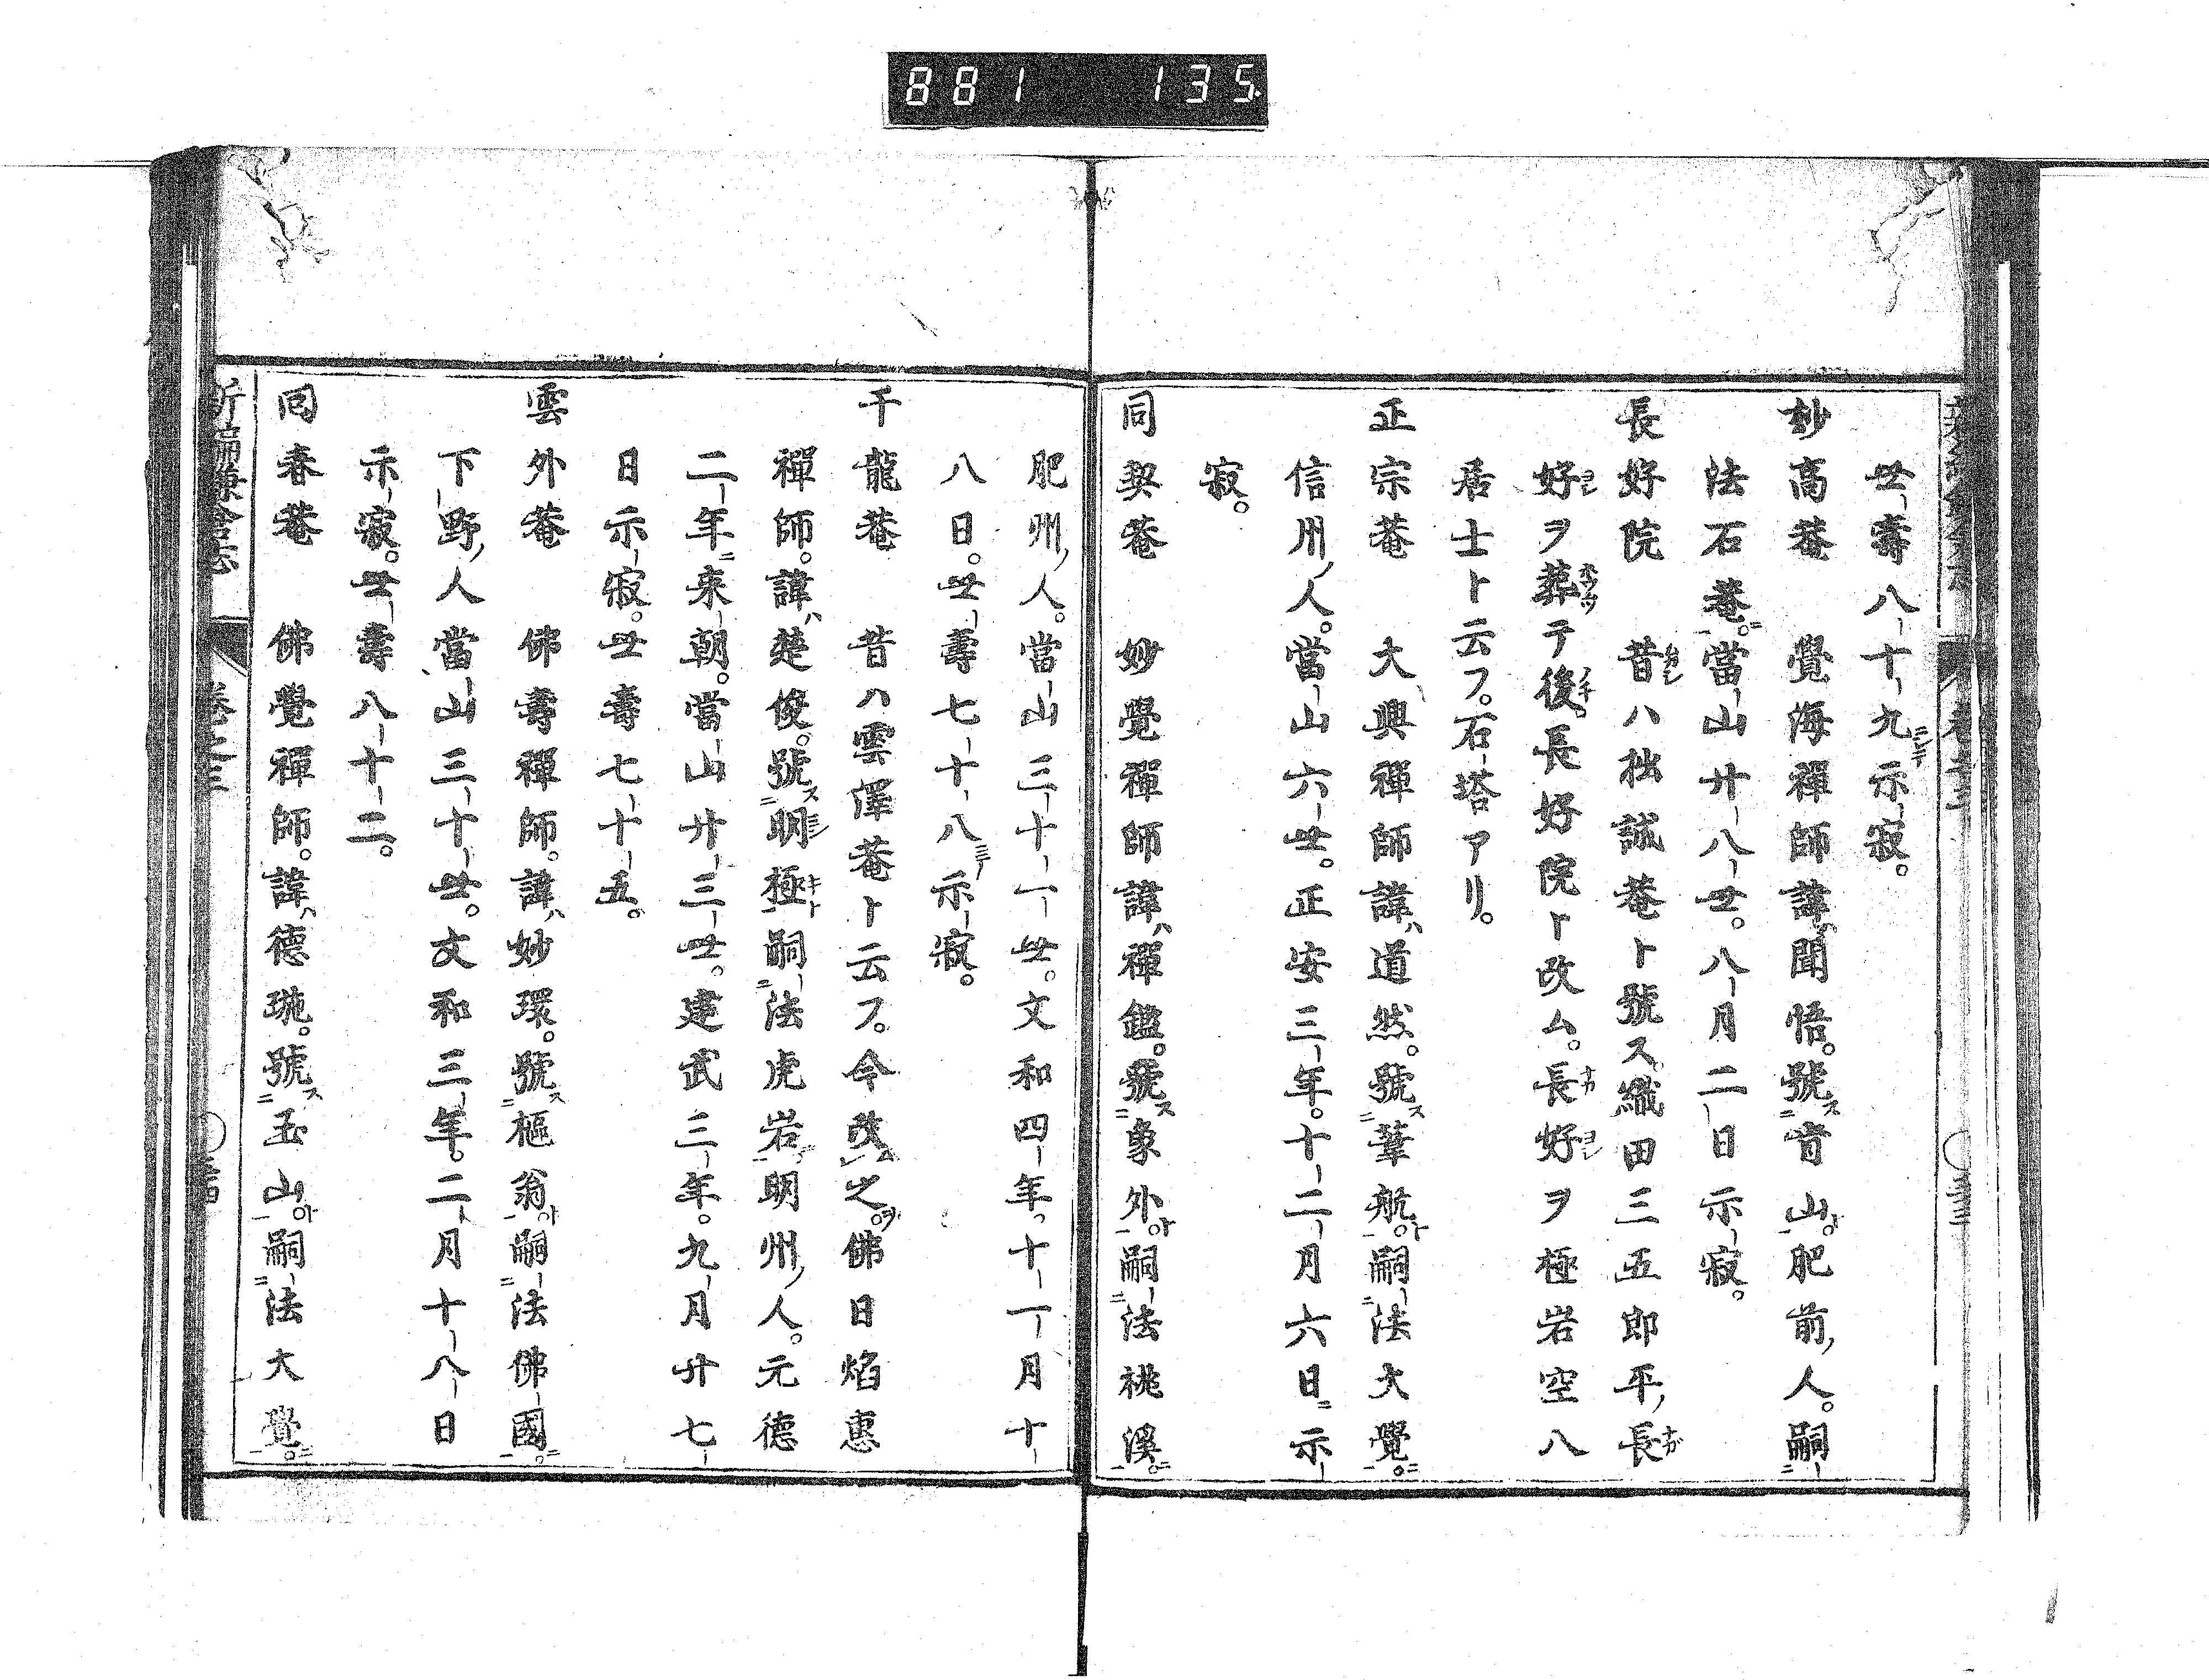 881 135
世壽八十九ニシテ示寂。
妙高菴 覺海禪師諱ハ聞悟。號ス肯山ト。肥前ノ人。嗣
法石菴ニ。當山廿八世。八月二日示寂。
長好院 昔ハ拙誠菴ト號ス織田三五郎平ノ長
好ヲ葬テ後。長好院ト改ム。長好ヲ極岩空八
居士ト云フ。石塔アリ。
正宗菴 大興禪師諱ハ道然。號ス葦航ト。嗣法大覺ニ。
信州ノ人。當山六世。正安三年。十二月六日ニ示
寂。
同契菴 妙覺禪師諱ハ禪鑑。號ス象外ト。嗣法桃溪ニ。
肥州ノ人。當山三十一世。文和四年。十一月十
八日。世壽七十八ニシテ示寂。
千龍菴 昔ハ雲澤菴ト云フ。今改ム之ヲ。佛日焰惠
禪師。諱ハ楚俊。號ス明極ト嗣法虎岩ニ明州ノ人。元德
二年ニ来朝。當山廿三世。建武三年。九月廿七
日示寂。世壽七十五。
雲外菴 佛壽禪師。諱ハ妙環。號ス樞翁ト。嗣法佛國ニ。
下野ノ人當山三十世。文和三年。二月十八日
示寂。世壽八十二。
同春菴 佛覺禪師。諱ハ德璇。號ス玉山ト。嗣法大覺ニ。
新編鎌倉志 卷之三